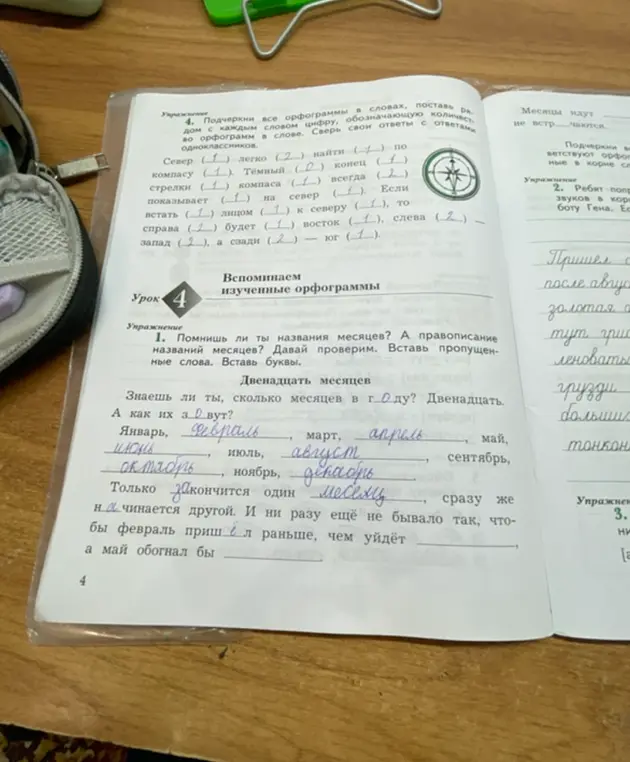 Упражнение
4. Подчеркни все орфограммы в словах, поставь ря-
дом с каждым словом цифру, обозначающую количест-
во орфограмм в слове. Сверь свои ответы с ответами
одноклассников.
Север (1) легко (2) найти (1) по
компасу (1). Тёмный (0) конец (1)
стрелки (1) компаса (1) всегда (2)
показывает (1) на север (1). Если
встать (1) лицом (1) к северу (1), то
справа (2) будет (1) восток (1), слева (2) —
запад (2), а сзади (2) — юг (1).
Вспоминаем
изученные орфограммы
Урок 4
Упражнение
1. Помнишь ли ты названия месяцев? А правописание
названий месяцев? Давай проверим. Вставь пропущен-
ные слова. Вставь буквы.
Двенадцать месяцев
Знаешь ли ты, сколько месяцев в году? Двенадцать.
А как их зовут?
Январь, февраль, март, апрель, май,
июнь, июль, август, сентябрь,
октябрь, ноябрь, декабрь.
Только закончится один месецц, сразу же
начинается другой. И ни разу ещё не бывало так, что-
бы февраль пришёл раньше, чем уйдёт ,
а май обогнал бы .
4
Месяцы идут
не встр чаются.
Подчеркни
ветствуют
ные в корне
Упражнение
2. Ребят
звуков в
боту Гена.
Пришёл
после
золотая
тут
грузди
3.